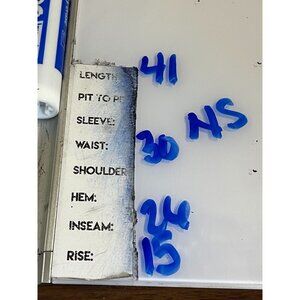 LENGTH 41
PIT TO PI
SLEEVE: NS
WAIST: 30
SHOULDER
HEM:
INSEAM: 26
RISE: 15